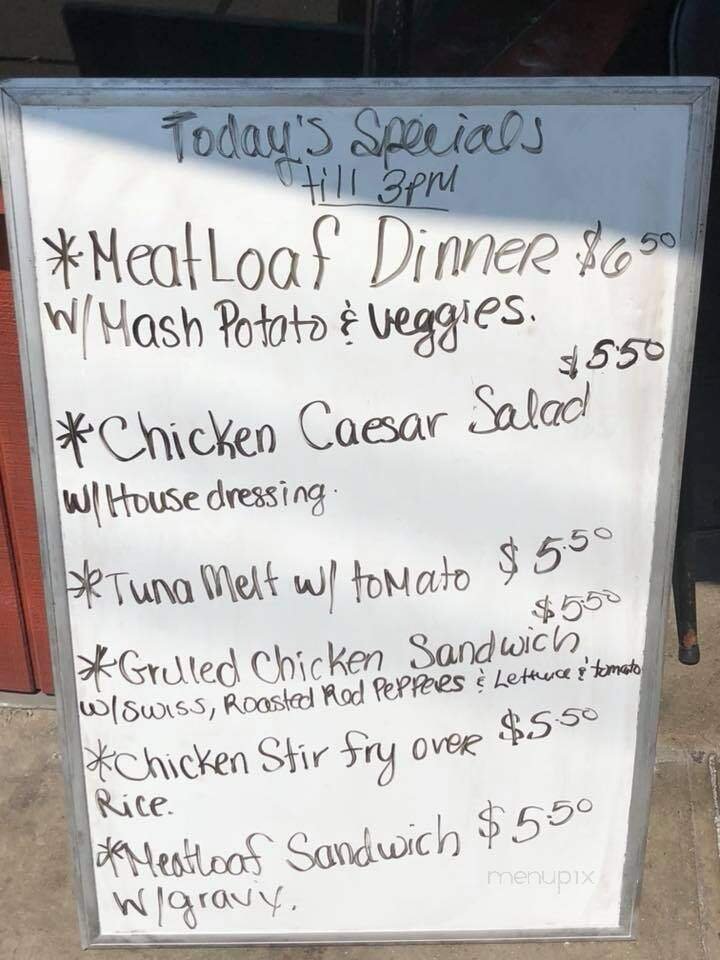 Today's Specials
till 3PM
*MeatLoaf Dinner $6.50
w/Mash Potato & veggies.
$5.50
*Chicken Caesar Salad
w/House dressing.
*Tuna Melt w/ tomato $5.50
$5.50
*Grilled Chicken Sandwich
w/swiss, Roasted Red Peppers & Lettuce & tomato
*Chicken Stir fry over $5.50
Rice.
*Meatloaf Sandwich $5.50
w/gravy.
menupix